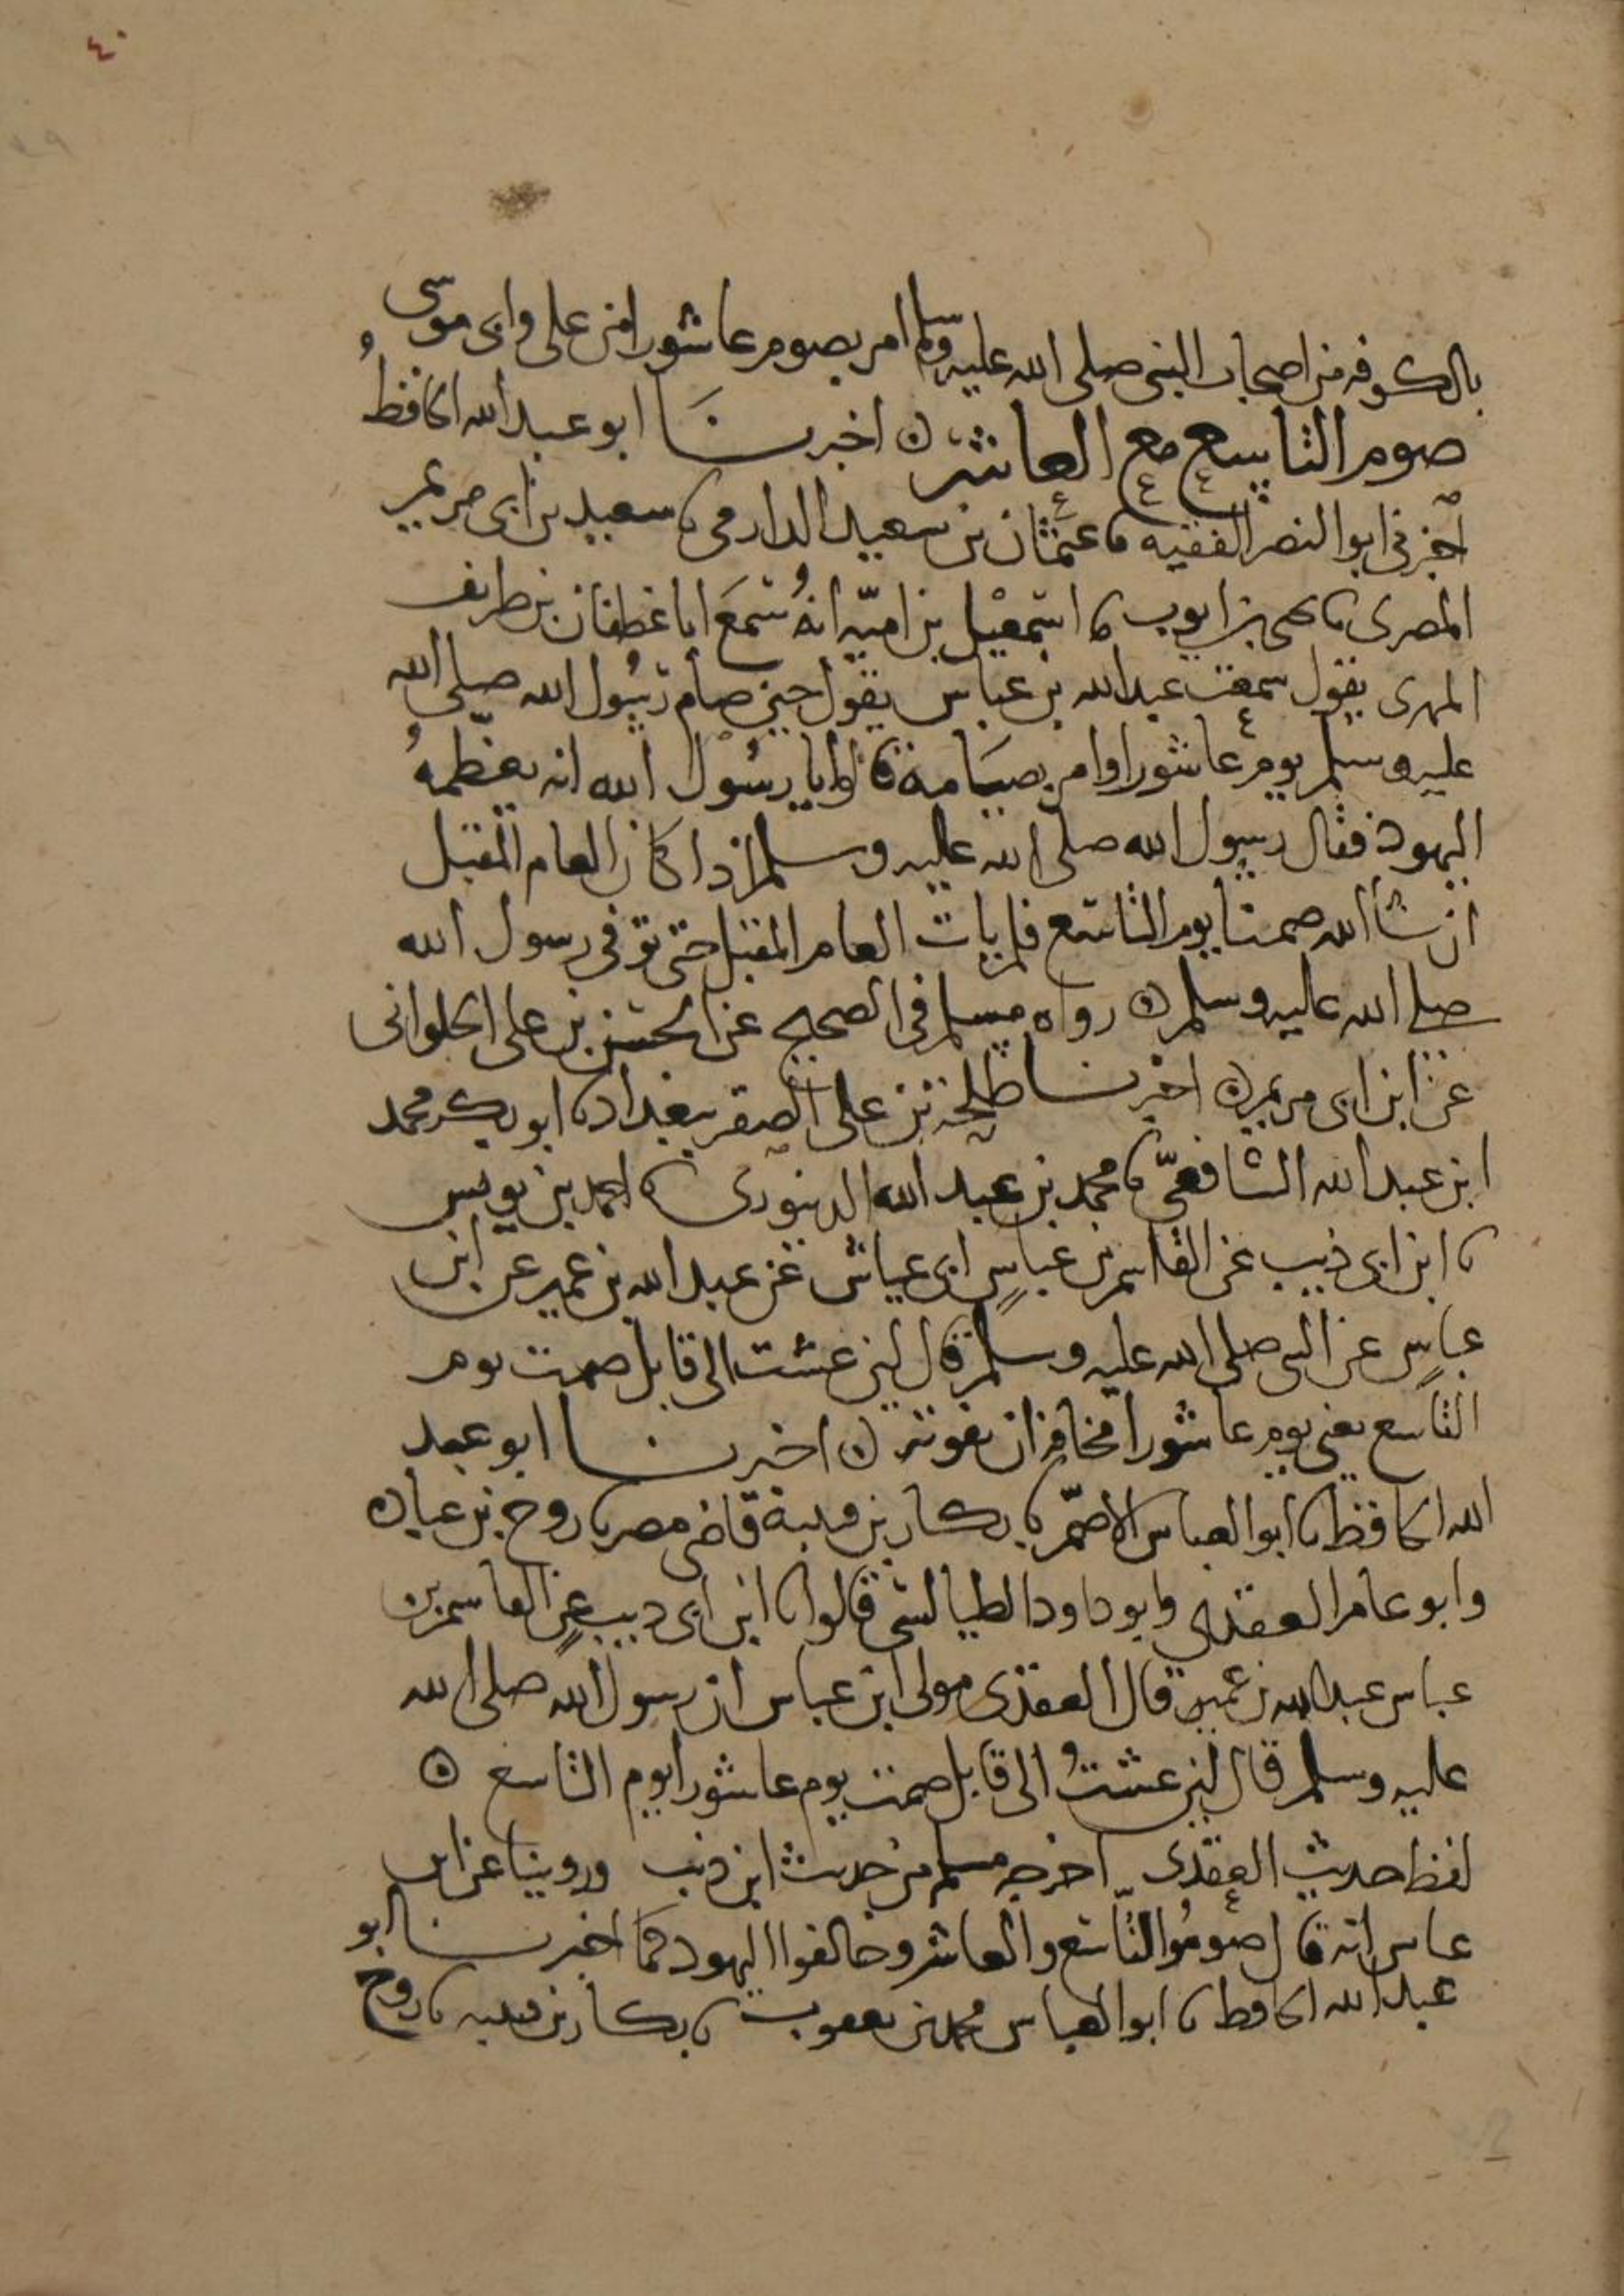 ٤٠
بالكوفة من اصحاب النبي صلى الله عليه وسلم امر بصوم عاشورا من على وابى موسى
صوم التاسع مع العاشر ه اخبرنا ابو عبد الله الحافظ
اخبرنى ابو النضر الفقيه ثنا عثمان بن سعيد الدارمى ثنا سعيد بن ابى مريم
المصرى ثنا يحيى بن ايوب ثنا اسمعيل بن اميّه انهُ سَمعَ ابا غطفان بن طريف
المرى يقول سمعت عبد الله بن عباس يقول حين صام رسُول الله صلى الله
عليه وسلم يوم عاشورا وامر بصيَامه قالوا يا رسُول الله انه يعظّمهُ
اليهود فقال رسول الله صلى الله عليه وسلم اذا كان العام المقبل
ان شاالله صمنا يوم التاسع فلم يات العام المقبل حتى توفى رسول الله
صلى الله عليه وسلم ه رواه مسلم فى الصحيح عن الحسن بن على الحلوانى
عن ابن ابى مريم ه اخبرنا طلحة بن على الصقر ببغداد ثنا ابو بكر محمد
ابن عبد الله الشافعىّ ثنا محمد بن عبد الله الدينورى ثنا احمد بن يونس
ثنا ابن ابى ذيب عن القاسم بن عباسٍ ابى عياش عن عبد الله بن عمير عن ابن
عباسٍ عن النبى صلى الله عليه وسلم قال لئن عشت الى قابل صمت يوم
التاسع يعنى يوم عاشورا مخافة ان يفوته ه اخبرنا ابو عبد
الله الحافظ ثنا ابو العباس الاصمّ ثنا بكار بن قتيبة قاضى مصر ثنا روح بن عباده
وابو عامر العقدى وابو داود الطيالسى قالوا ثنا ابن ابى ذيب عن القاسم بن
عباس عبد الله بن عُمير قال العقدى مولى ابن عباس ان رسول الله صلى الله
عليه وسلم قال لئن عشتُ الى قابل صمت يوم عاشورا يوم التاسع ه
لفظ حديث العقدى اخرجه مسلم من حديث ابن ذيب وروينا عن ابن
عباس انه قال صُومُوا التّاسع والعاشر وخالفوا اليهود كما اخبرنا ابو
عبد الله الحافظ ثنا ابو العباس محمد بن يعقوب ثنا بكار بن قتيبه ثنا روح